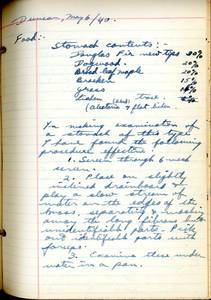 Duncan, May 6/40.
Food:-
Stomach contents:-
Douglas Fir new tips 20%
Dogwood 20%
Broad leaf maple 20%
Bracken 15%
Grass
Lichen trace
(Alectoria & flat lichen
In making examination of
a stomach of this type
I have found the following
procedure effective
1. Screen through 6 mesh
screen.
2. Place on slightly
inclined drainboard &
use a slow stream of
water on the edges of the
mass, separating & washing
away the long fibres but
unidentifiable parts. Pick
out identifiable parts with
forceps.
3. Examine these under
water in a pan.